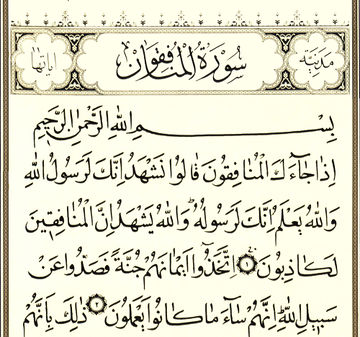 مدنيته سورة المنافقون اياتها
بسم الله الرحمن الرحيم
اِذَا جَاۤءَكَ الْمُنَافِقُونَ قَالُوا نَشْهَدُ اِنَّكَ لَرَسُولُ اللهِ
وَاللهُ يَعْلَمُ اِنَّكَ لَرَسُولُهُ وَاللهُ يَشْهَدُ اِنَّ الْمُنَافِقِينَ
لَكَاذِبُونَ ١ اِتَّخَذُوا اَيْمَانَهُمْ جُنَّةً فَصَدُّوا عَنْ
سَبِيلِ اللهِ اِنَّهُمْ سَاۤءَ مَا كَانُوا يَعْمَلُونَ ٢ ذٰلِكَ بِاَنَّهُمْ